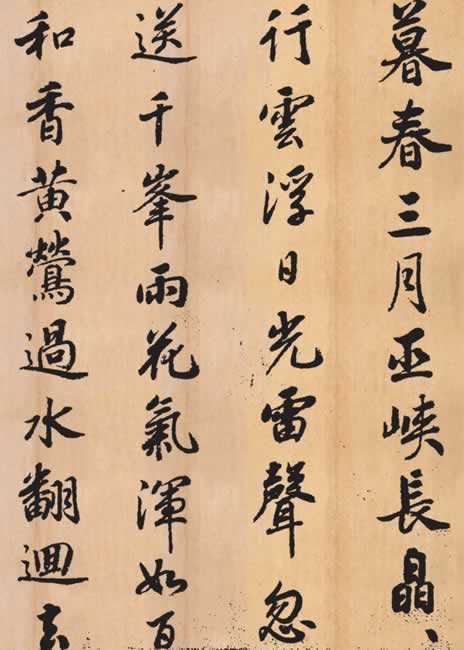 暮春三月巫峽長晶、
行雲浮日光雷聲忽
送千峯雨花氣渾如百
和香黃鶯過水翻迴去